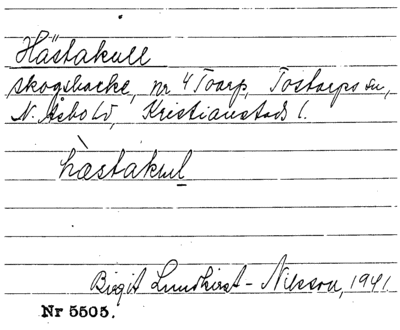 Hästakull
skogsbacke, nr 4 Toarp, Tostarps sn,
N. Åsbo hd, Kristianstads l.
hàstakul
Birgit Lundkvist-Nilsson, 1941.
Nr 5505.